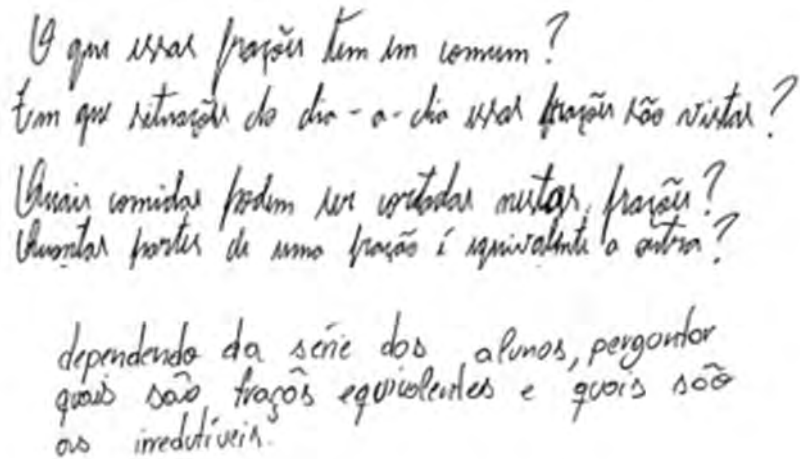 O que essas frações tem em comum?
Em que situações do dia-a-dia essas frações são vistas?
Quais comidas podem ser cortadas nestas frações?
Quantas partes de uma fração é equivalente a outra?
dependendo da série dos alunos, perguntar
quais são fraçõs equivalentes e quais são
as irredutíveis.